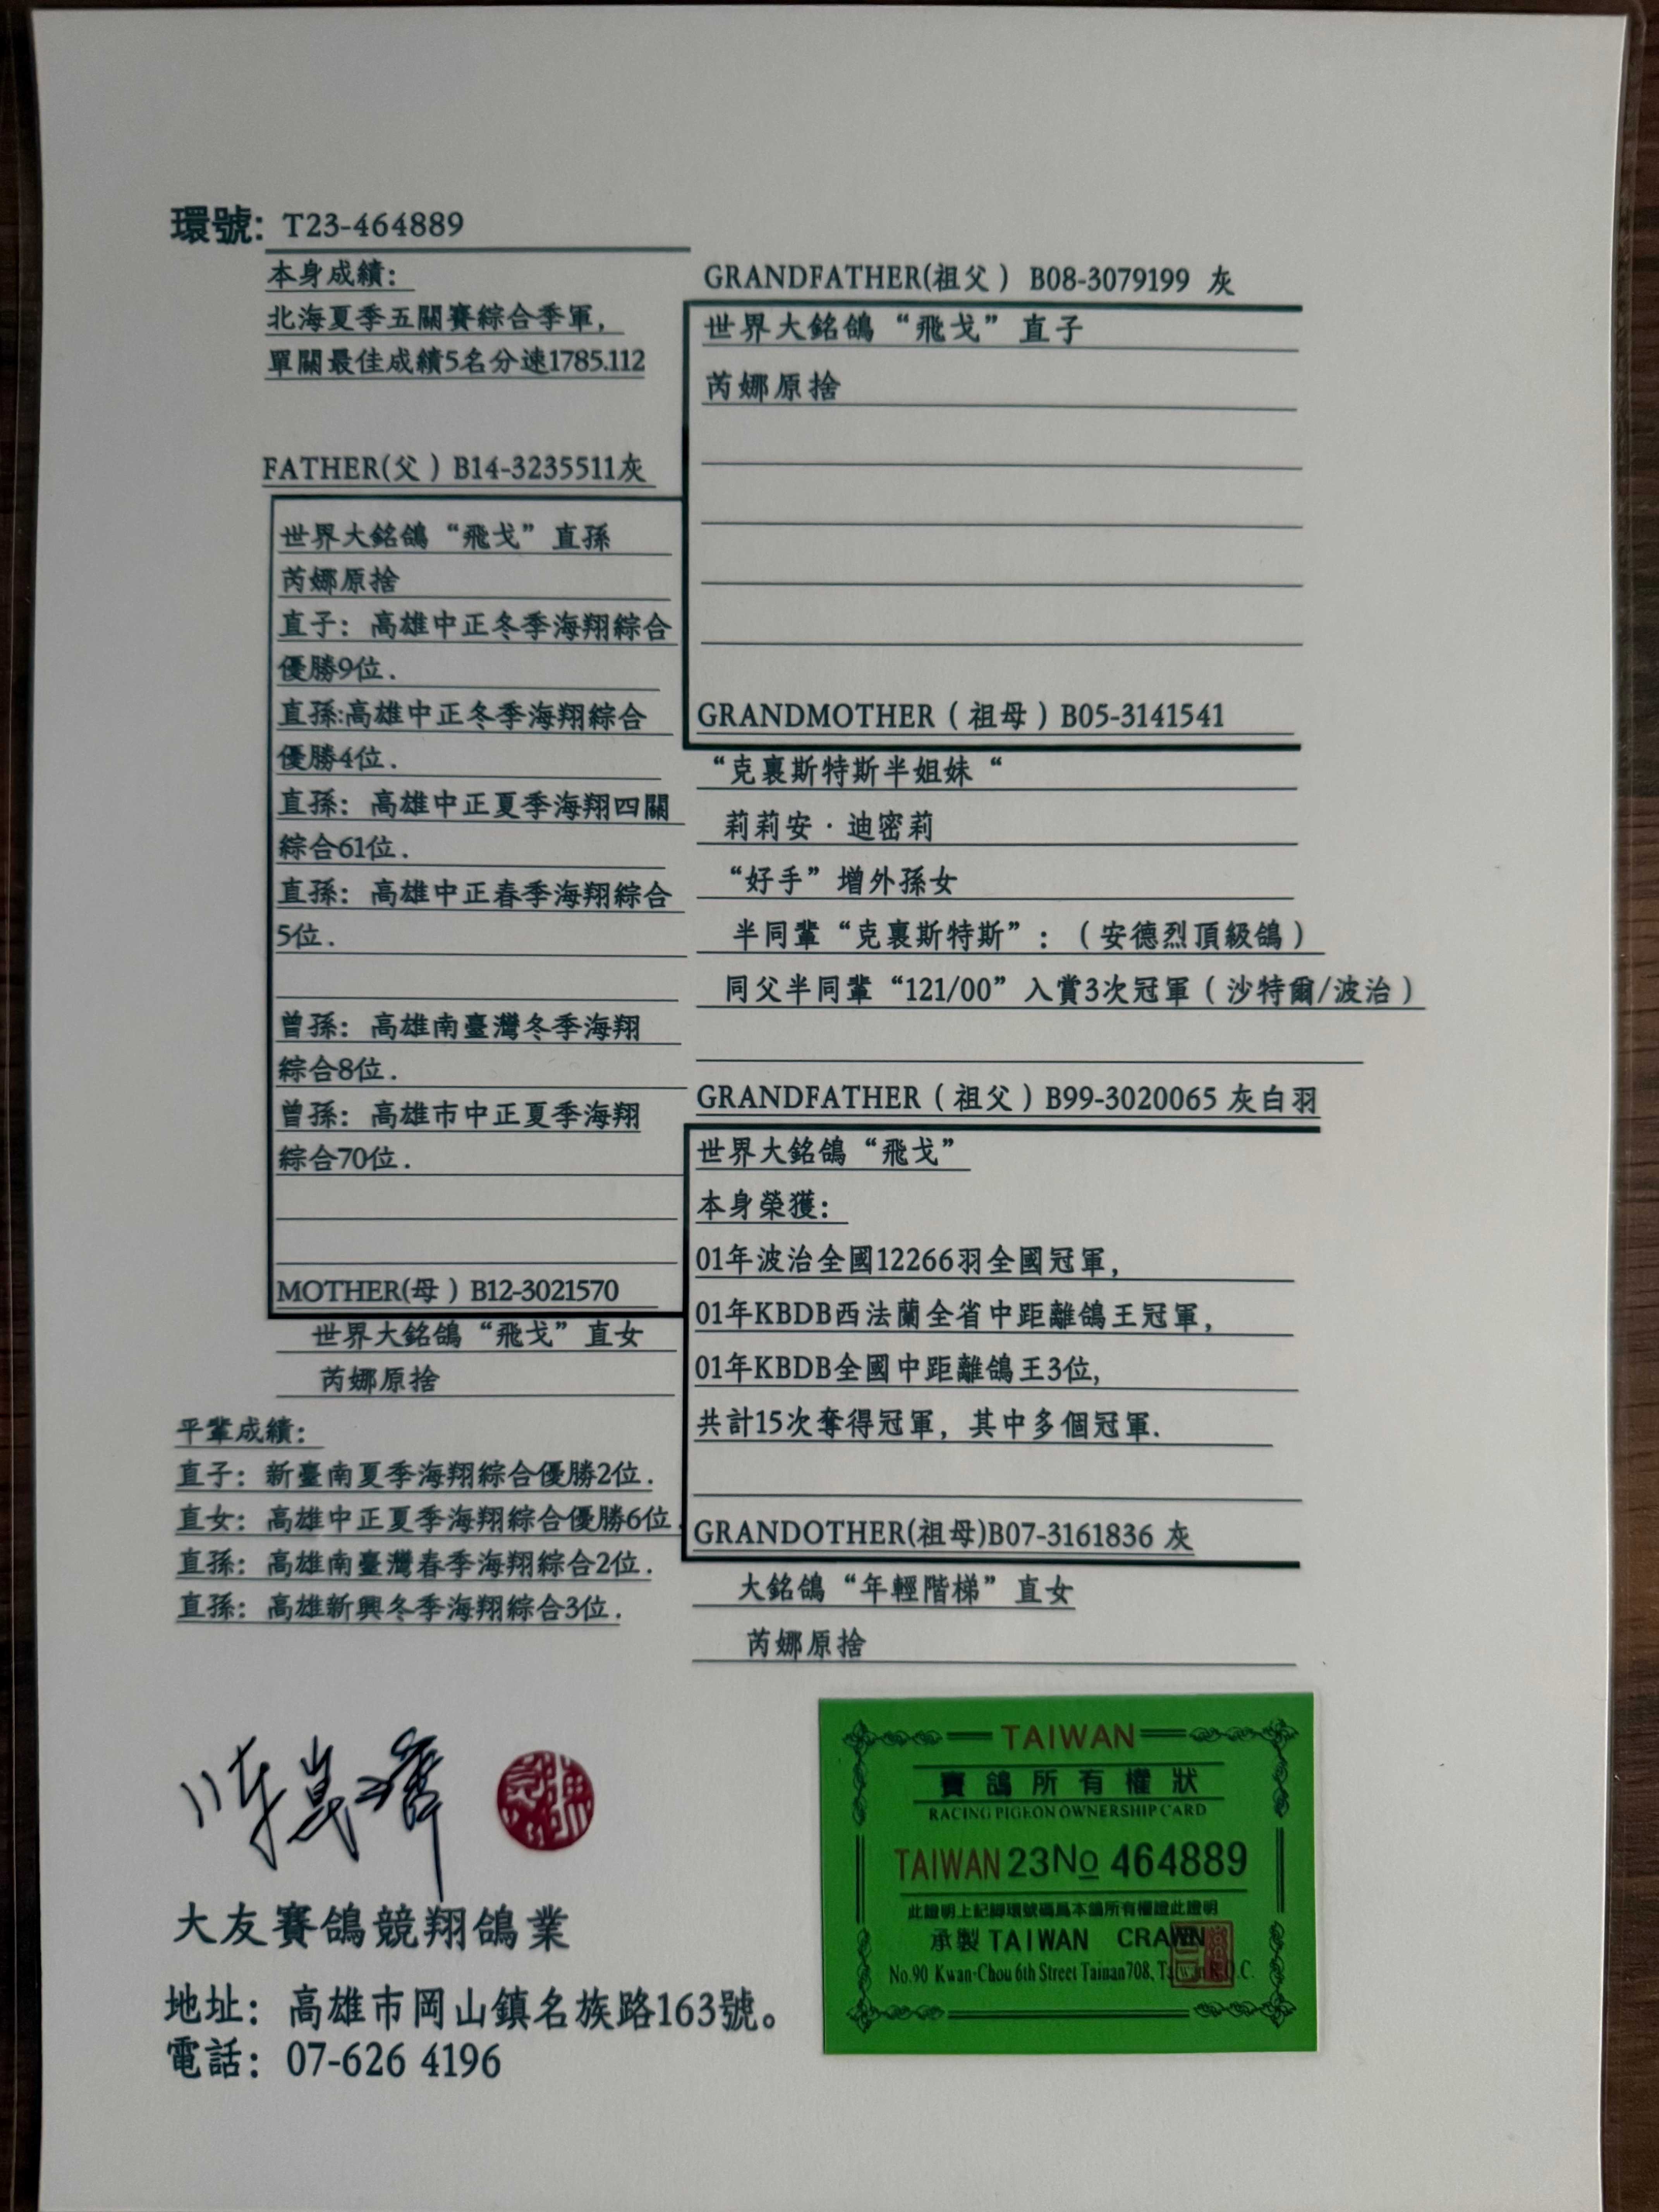 環號: T23-464889
本身成績:
北海夏季五關賽綜合季軍,
單關最佳成績5名分速1785.112
FATHER(父) B14-3235511灰
世界大銘鴿“飛戈”直孫
芮娜原捨
直子: 高雄中正冬季海翔綜合
優勝9位.
直孫:高雄中正冬季海翔綜合
優勝4位.
直孫: 高雄中正夏季海翔四關
綜合61位.
直孫: 高雄中正春季海翔綜合
5位.
曾孫: 高雄南臺灣冬季海翔
綜合8位.
曾孫: 高雄市中正夏季海翔
綜合70位.
MOTHER(母) B12-3021570
世界大銘鴿“飛戈”直女
芮娜原捨
平輩成績:
直子: 新臺南夏季海翔綜合優勝2位.
直女: 高雄中正夏季海翔綜合優勝6位.
直孫: 高雄南臺灣春季海翔綜合2位.
直孫: 高雄新興冬季海翔綜合3位.
GRANDFATHER(祖父) B08-3079199 灰
世界大銘鴿“飛戈”直子
芮娜原捨
GRANDMOTHER(祖母)B05-3141541
“克裏斯特斯半姐妹“
莉莉安·迪密莉
“好手”增外孫女
半同輩“克裏斯特斯”:(安德烈頂級鴿)
同父半同輩“121/00”入賞3次冠軍(沙特爾/波治)
GRANDFATHER(祖父)B99-3020065 灰白羽
世界大銘鴿“飛戈”
本身榮獲:
01年波治全國12266羽全國冠軍,
01年KBDB西法蘭全省中距離鴿王冠軍,
01年KBDB全國中距離鴿王3位,
共計15次奪得冠軍, 其中多個冠軍.
GRANDOTHER(祖母)B07-3161836 灰
大銘鴿“年輕階梯”直女
芮娜原捨
大友賽鴿競翔鴿業
地址: 高雄市岡山鎮名族路163號。
電話: 07-626 4196
TAIWAN
賽鴿所有權狀
RACING PIGEON OWNERSHIP CARD
TAIWAN 23No 464889
此證明上記腳環號碼爲本鴿所有權證此證明
承製 TAIWAN CRAWN
No.90 Kwan-Chou 6th Street Tainan 708, Taiwan R.O.C.